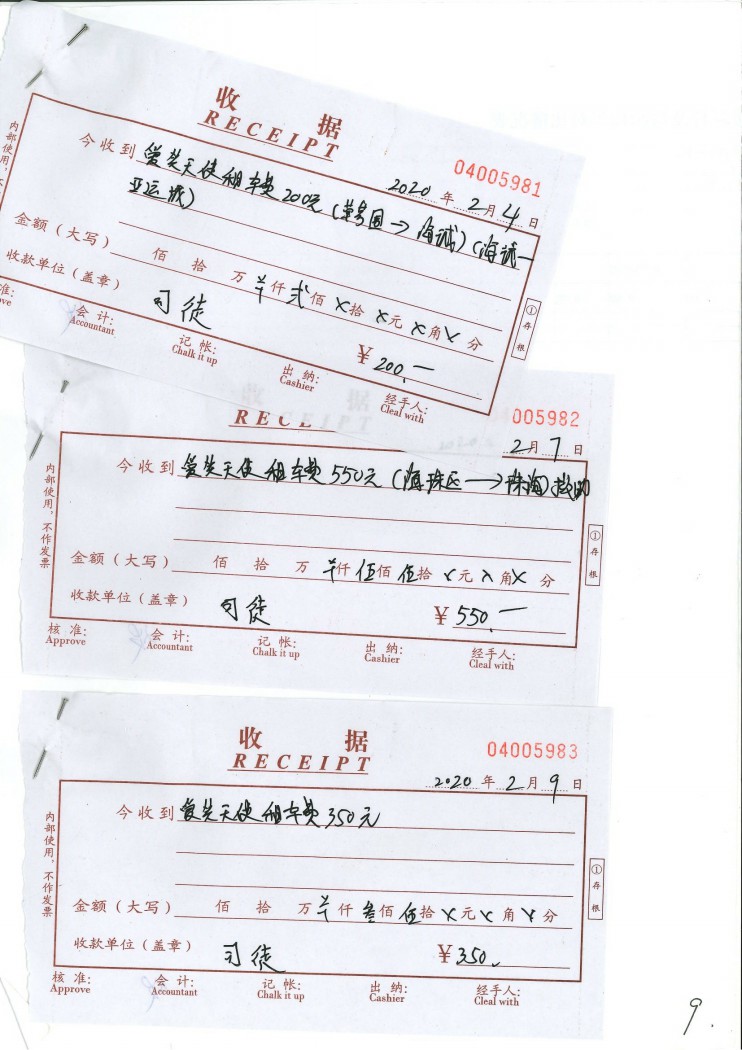 收 据
RECEIPT
04005981
2020 年 2 月 4 日
今收到 爱笑天使租车费200元(
亚运城)
金额(大写) 佰 拾 万 仟 弍 佰 X 拾 X 元 X 角 X 分
收款单位(盖章) 司徒 ¥ 200.一
会 计: 记 帐: 出 纳: 经手人:
Accountant Chalk it up Cashier Cleal with
内部使用,不
① 存根
RECEIPT
005982
2 月 7 日
今收到 爱笑天使租车费550元(海珠区→珠海)救助
金额(大写) 佰 拾 万 仟 伍 佰 伍 拾 X 元 X 角 X 分
收款单位(盖章) 司徒 ¥ 550.一
核 准: 会 计: 记 帐: 出 纳: 经手人:
Approve Accountant Chalk it up Cashier Cleal with
内部使用,不作发票
① 存根
收 据
RECEIPT
04005983
2020 年 2 月 9 日
今收到 爱笑天使租车费350元
金额(大写) 佰 拾 万 仟 叁 佰 伍 拾 X 元 X 角 X 分
收款单位(盖章) 司徒 ¥ 350.
核 准: 会 计: 记 帐: 出 纳: 经手人:
Approve Accountant Chalk it up Cashier Cleal with
内部使用,不作发票
① 存根
9.